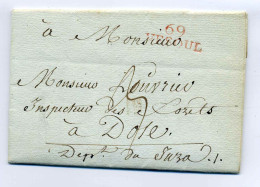 à Monsieur
69
VESOUL
Monsieur Louvrier
Inspecteur des forêts
2
à Dole
Depr. du Jura